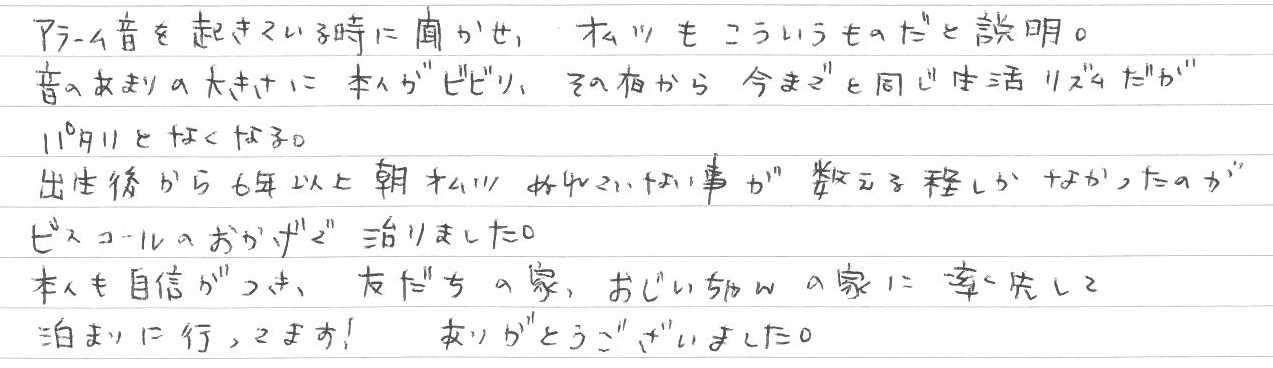 アラーム音を起きている時に聞かせ、オムツもこういうものだと説明。
音のあまりの大きさに本人がビビリ、その夜から今までと同じ生活リズムだが
パタリとなくなる。
出生後から6年以上朝オムツぬれていない事が数える程しかなかったのが
ピスコールのおかげで治りました。
本人も自信がつき、友だちの家、おじいちゃんの家に率先して
泊まりに行ってます! ありがとうございました。